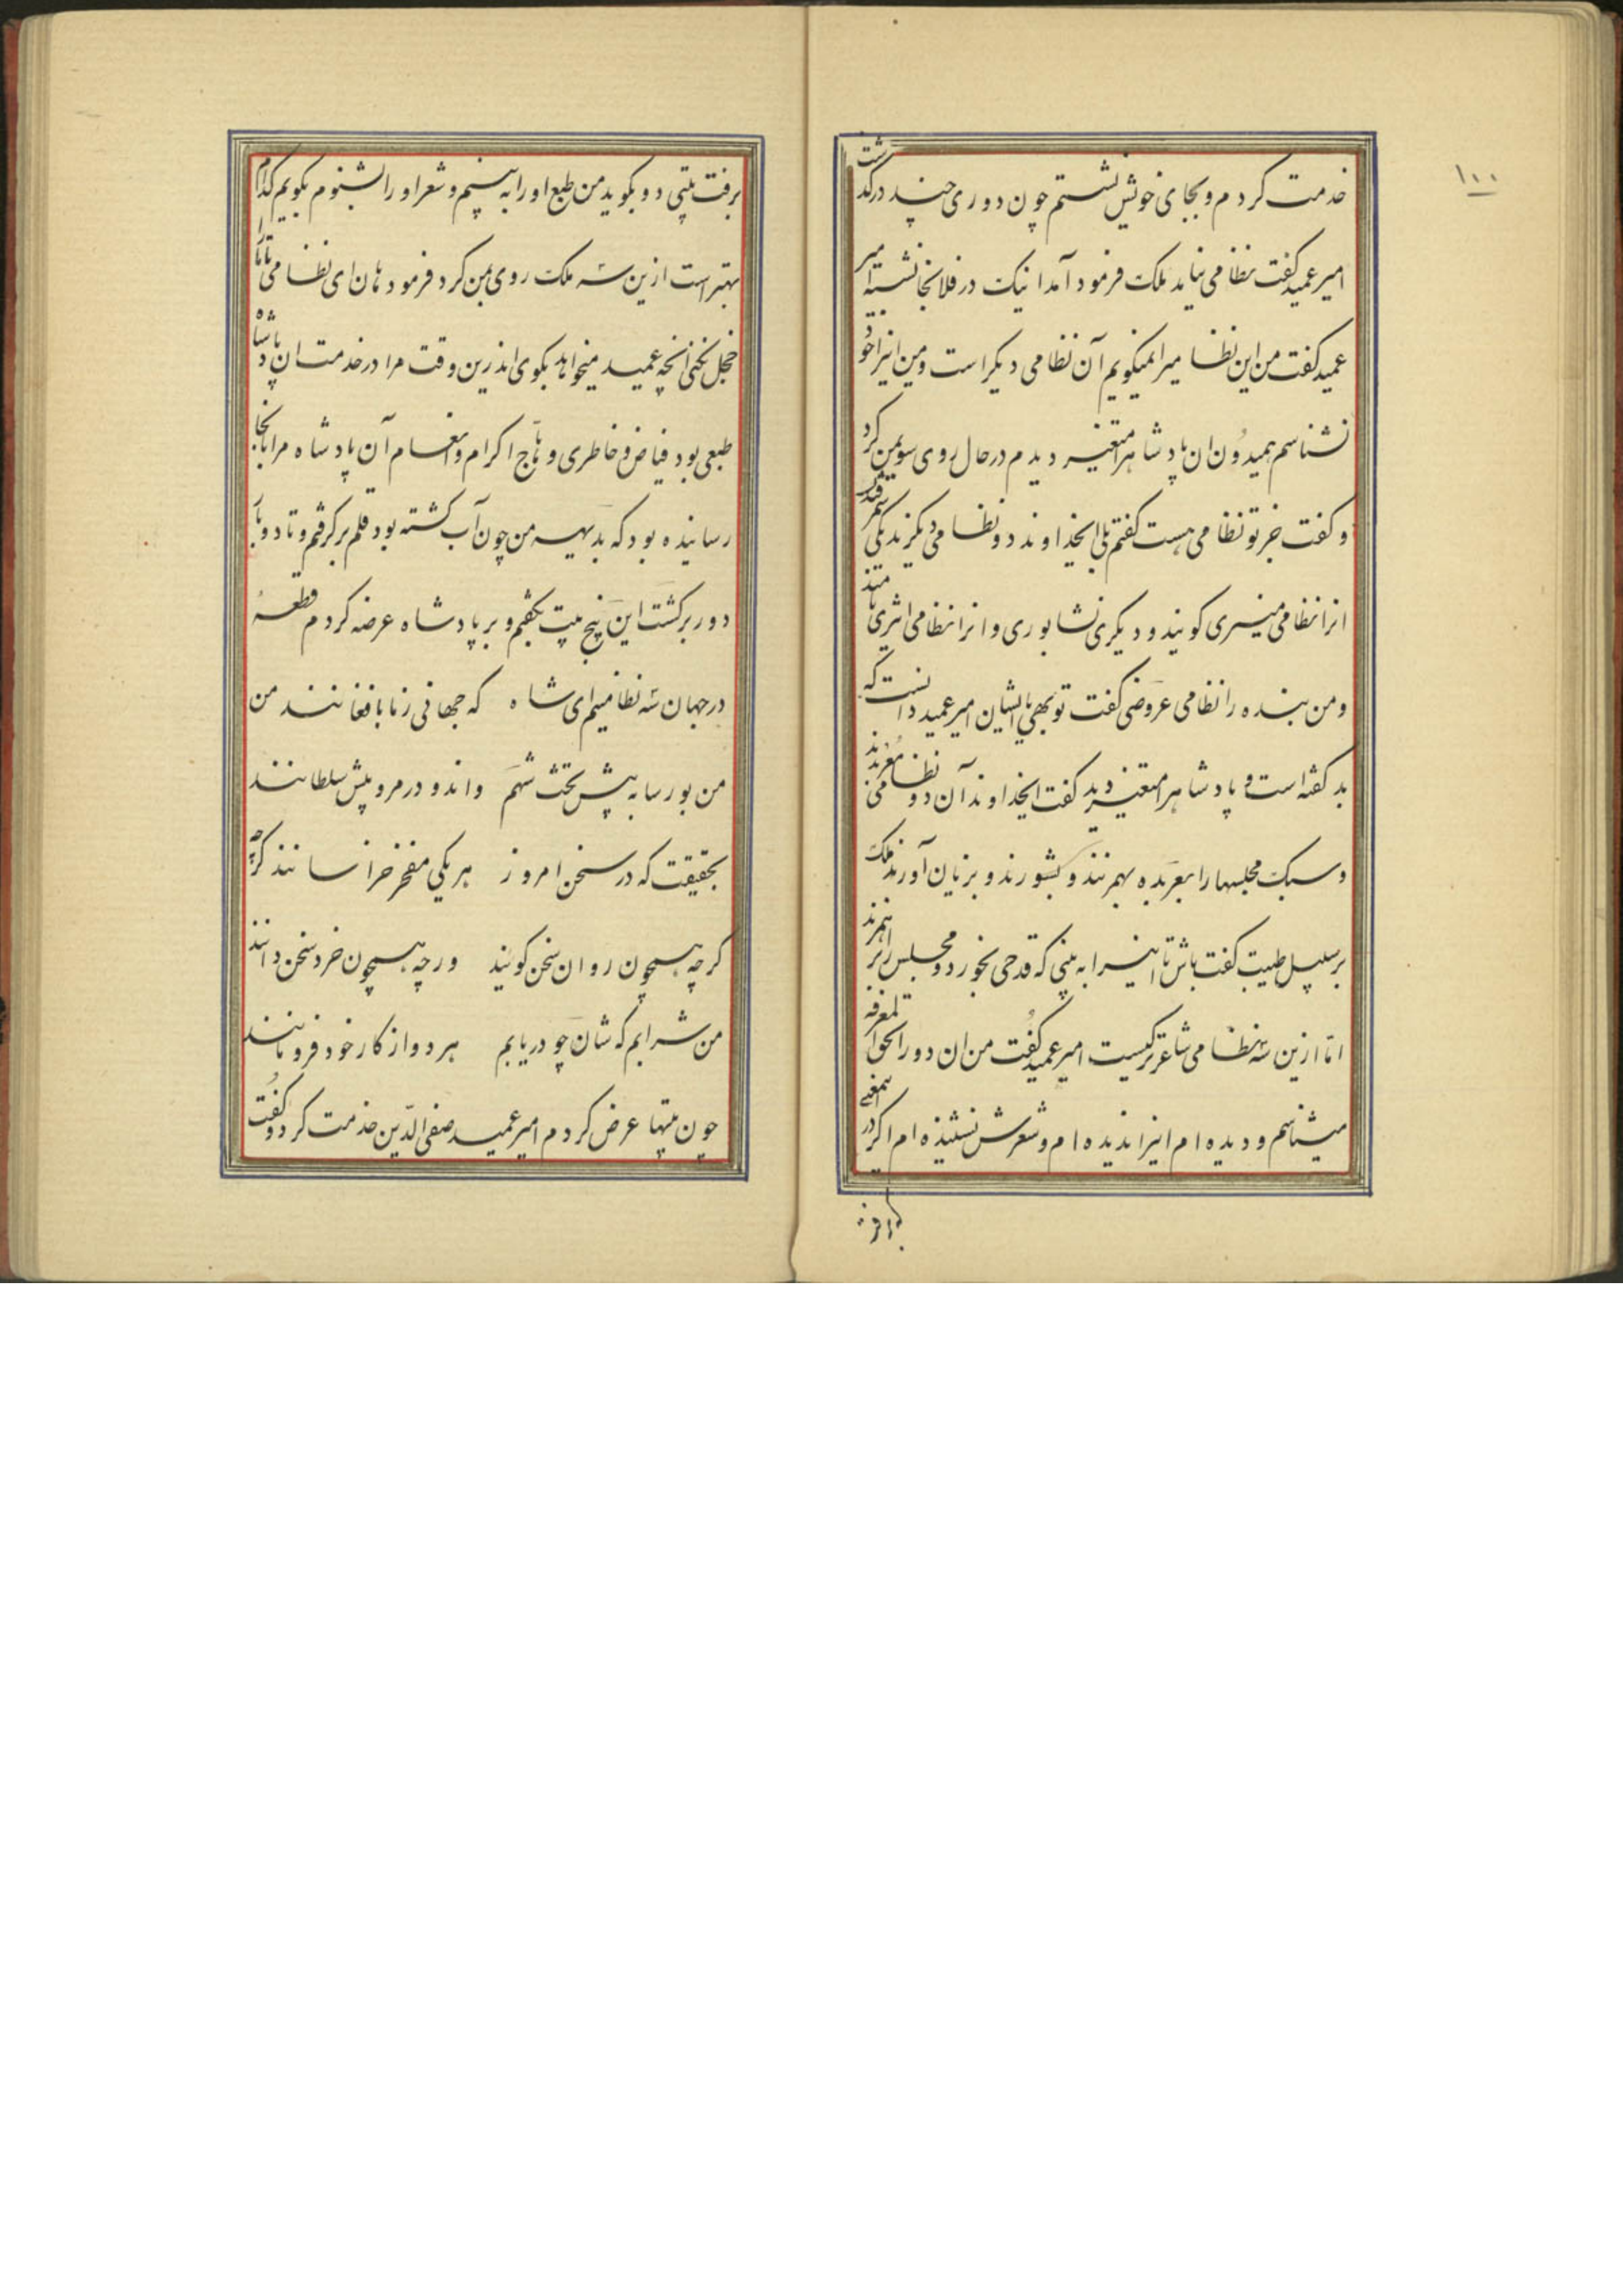 ۱۰۰
خدمت کردم و بجای خویش نشستم چون دوری چند درگذشت
امیر عمید گفت نظامی نیامد ملک فرمود آمد اینک در فلانجا نشسته امیر
عمید گفت من این نظامی را نمیگویم آن نظامی دیگر است و من اینرا خود
نشناسم همیدُون ان پادشاه را متغیر دیدم در حال روی سوی من کرد
و گفت جز تو نظامی هست گفتم بلی ایخداوند دو نظامی دیگرند یکی سمرقندی
انرا نظامی منیری گویند و دیگری نشابوری و انرا نظامی اثری نامند
و من بنده را نظامی عروضی گفت تو بهی یا ایشان امیر عمید دانست که
بد گفته است و پادشاه را متغیر دید گفت ایخداوند آن دو نظامی مُعربدند
و سبک مجلسها را بعربده بهم زنند و بشورند و بزیان آورند ملک
بر سبیل طیبت گفت باش تا اینرا به بینی که قدحی بخورد و مجلس را بر هم زند
امّا ازین سه نظامی شاعرتر کیست امیر عمید گفت من ان دو را بحق المعرفه
میشناسم و دیده ام اینرا ندیده ام و شعرش نشنیذه ام اگر در اینمعنی
برفت بیتی دو بگوید من طبع او را به بینم و شعر او را بشنوم بگویم کدام
بهتر است ازین سه ملک روی بمن کرد فرمود هان ای نظامی تا ما را
خجل نکنی انچه عمید میخواهد بگوی اندرین وقت مرا در خدمت ان پادشاه
طبعی بود فیاض و خاطری وهّاج اکرام و انعام آن پادشاه مرا بانجا
رسانیده بود که بدیهه من چون آب گشته بود قلم برگرفتم و تا دو بار
دور برگشت این پنج بیت بگفتم و بر پادشاه عرضه کردم قطعهٔ
در جهان سه نظامیم ای شاه که جهانی ز ما بافغانند من
من بورسا به پیش تخت شهم وان دو در مرو پیش سلطانند
بحقیقت که در سخن امروز هر یکی مفخر خراسانند گرچه
گرچه همچون روان سخن گویند ورچه همچون خرد سخن دانند
من شرابم که شان چو دریابم هر دو از کار خود فرو مانند
چون بیتها عرض کردم امیر عمید صفی الدّین خدمت کرد و گفت